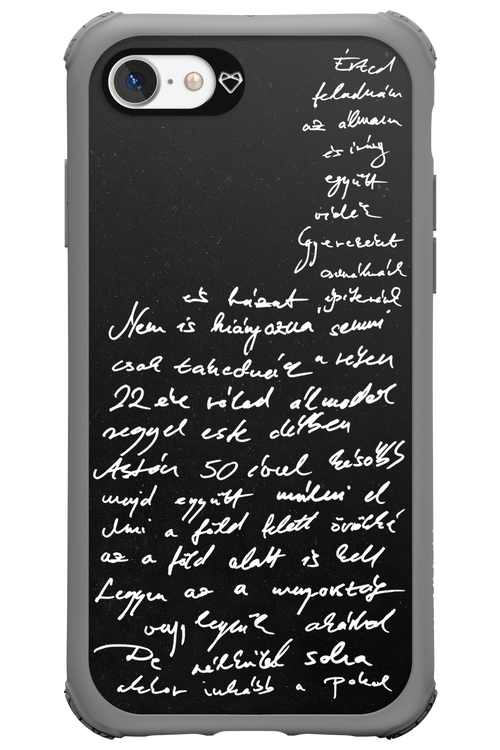 Érted
feladnám
az álmam
és így
együtt
Gyerekeket
csinálnánk
és házat építenénk
Nem is hiányozna semmi
csak takarónak a
22 éve rólad álmodok
reggel este délben
Aztán 50 évvel később
majd együtt múlni el
Ami a föld felett örökké
az a föld alatt is kell
Legyen az a mennyország
vagy legyünk akárhol
De nélküled soha
akkor inkább a Pokol